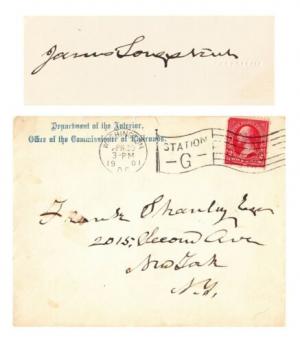 James Longstreet
Department of the Interior,
Office of the Commissioner of Railroads.
WASHINGTON
3-PM
1901
STATION
-G-
Frank Shanley Esq
2015, Second Ave
New York
N.Y.